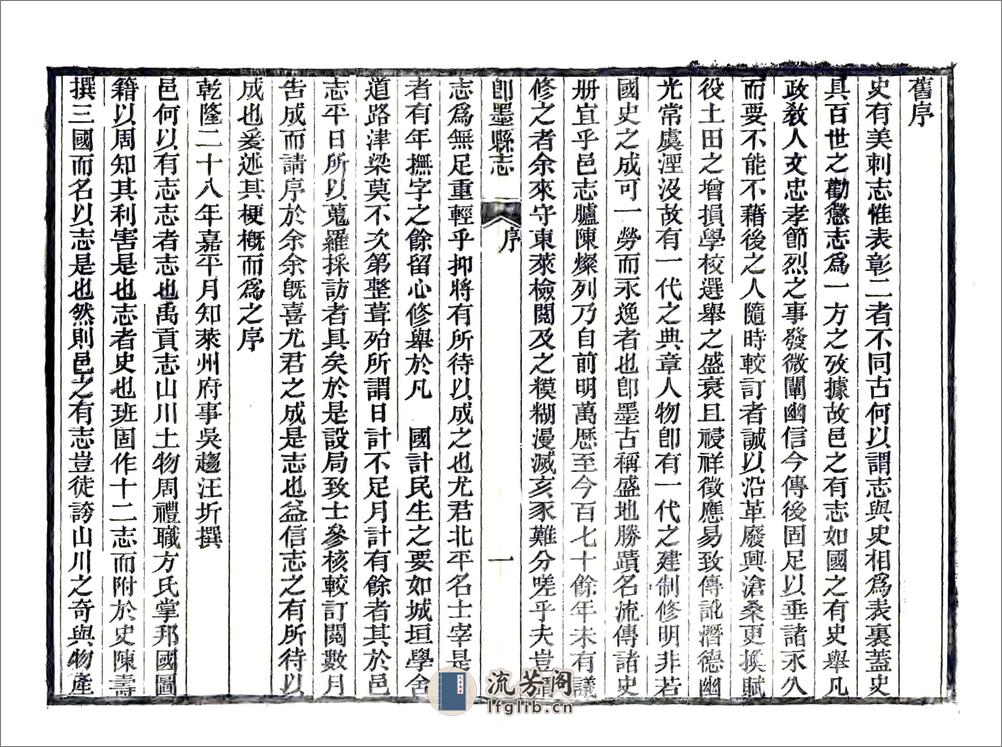 舊序
史有美刺志惟表彰二者不同古何以謂志與史相爲表裏蓋史
具百世之勸懲志爲一方之攷據故邑之有志如國之有史舉凡
政敎人文忠孝節烈之事發微闡幽信今傳後固足以垂諸永久
而要不能不藉後之人隨時較訂者誠以沿革廢興滄桑更換賦
役土田之增損學校選舉之盛衰且祲祥徵應易致傳訛潛德幽
光常虞湮沒故有一代之典章人物卽有一代之建制修明非若
國史之成可一勞而永逸者也卽墨古稱盛地勝蹟名流傳諸史
册宜乎邑志臚陳燦列乃自前明萬歷至今百七十餘年未有議
修之者余來守東萊檢閱及之糢糊漫滅亥豕難分嗟乎夫豈謂
卽墨縣志 序 一
志爲無足重輕乎抑將有所待以成之也尤君北平名士宰是邑
者有年撫字之餘留心修舉於凡 國計民生之要如城垣學舍
道路津梁莫不次第整葺殆所謂日計不足月計有餘者其於邑
志平日所以蒐羅採訪者具矣於是設局致士參核較訂閱數月
告成而請序於余余旣喜尤君之成是志也益信志之有所待以
成也爰述其梗概而爲之序
乾隆二十八年嘉平月知萊州府事吳趨汪圻撰
邑何以有志志者志也禹貢志山川土物周禮職方氏掌邦國圖
籍以周知其利害是也志者史也班固作十二志而附於史陳壽
撰三國而名以志是也然則邑之有志豈徒誇山川之奇與物產
流芳阁
lfglib.cn